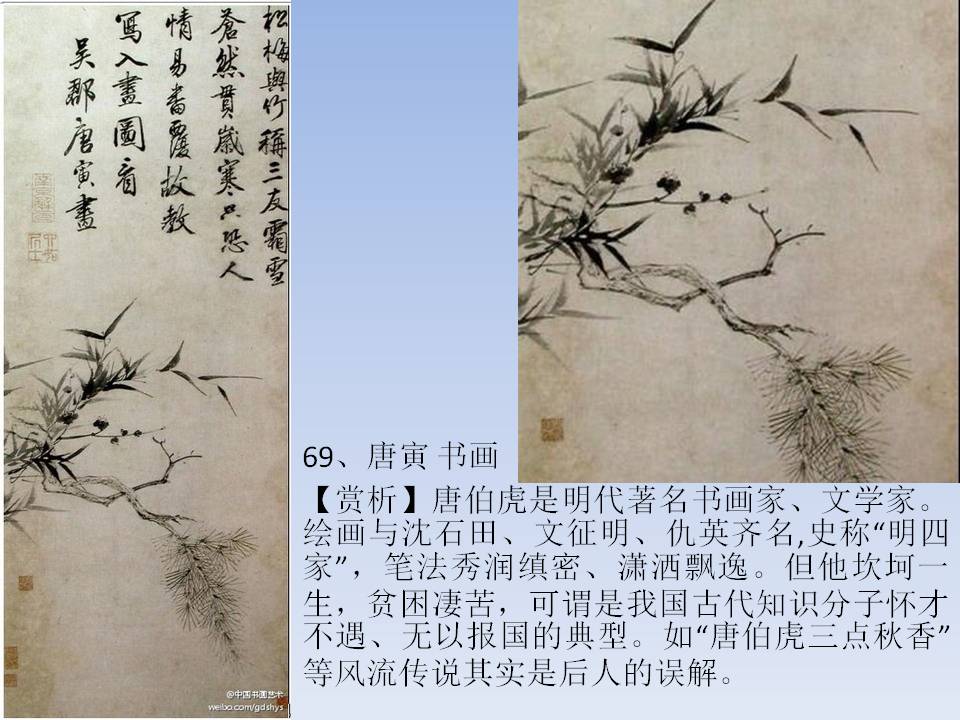 松梅與竹稱三友霜雪
蒼然貫歲寒只恐人
情易番覆故教
寫入畫圖看
吳郡唐寅畫
@中国书画艺术
weibo.com/gdshys
69、唐寅 书画
【赏析】唐伯虎是明代著名书画家、文学家。
绘画与沈石田、文征明、仇英齐名,史称“明四
家”，笔法秀润缜密、潇洒飘逸。但他坎坷一
生，贫困凄苦，可谓是我国古代知识分子怀才
不遇、无以报国的典型。如“唐伯虎三点秋香”
等风流传说其实是后人的误解。